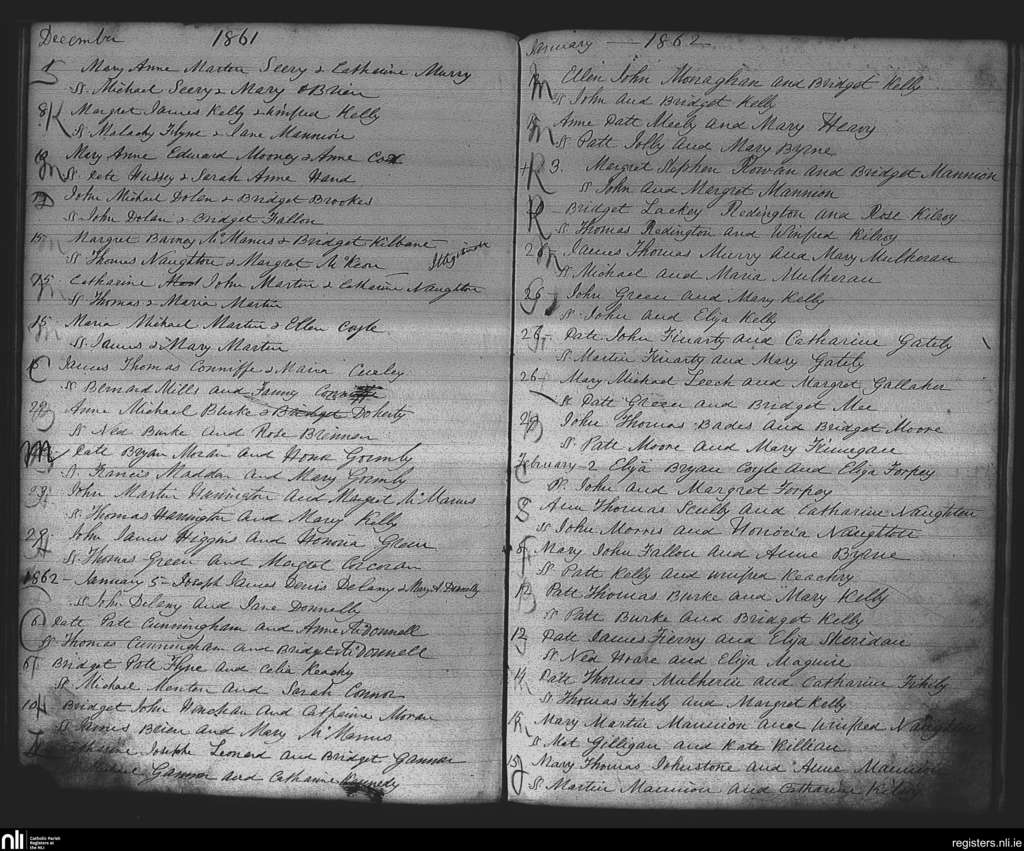 December 1861
1 Mary Anne Martin Seery & Catherine Murry
Sp. Michael Seery & Mary O Brien
8 K Margret James Kelly & Winifred Kelly
Sp. Malachy Flyne & Jane Mannion
M Mary Anne Edward Mooney & Anne Cox
Sp. Patt Hussey & Sarah Anne Hand
D John Michael Dolan & Bridget Brookes
Sp. John Dolan & Bridget Fallon
15 Margret Barney McManus & Bridget Kilbane
Sp. Thomas Naughton & Margret McKeon
15 Catharine John Martin & Catharine Naughton
Sp. Thomas & Maria Martin
15 Maria Michael Martin & Ellen Coyle
Sp. James & Mary Martin
C James Thomas Conniffe & Maria Cauley
Sp. Bernard Mills and Fanny
22 B Anne Michael Burke & Bridget Doherty
Sp. Ned Burke and Rose Brennan
M Patt Bryan Moran and Hona Gormly
Sp. Francis Madden and Mary Gormly
29 John Martin Hanington and Margret McManus
Sp. Thomas Hanington and Mary Kelly
29 John James Higgins and Honoria Green
Sp. Thomas Green and Margret Corcoran
1862 - January 5 - Joseph James Denis Delany & Mary A. Donnelly
Sp. John Delany and Jane Donnelly
C 6 Patt Patt Cunningham and Anne McDonnell
Sp. Thomas Cunningham and Bridget McDonnell
6 F Bridget Patt Flyne and Celia Keachy
Sp. Michael Menton and Sarah Connor
10 H Bridget John Henehan and Catherine Moran
Sp. James Beirn and Mary McManus
L Catharine Joseph Leonard and Bridget Gannon
Michael Gannon and Catharine Kennedy
January — 1862
M Ellen John Monaghan and Bridget Kelly
Sp. John and Bridget Kelly
M Anne Patt Meely and Mary Heavy
Sp. Patt Jolly and Mary Byrne
+ R 3. Margret Stephen Rowan and Bridget Mannion
Sp. John and Margret Mannion
R Bridget Lackey Redington and Rose Kilroy
Sp. Thomas Redington and Winifred Kilroy
2 M James Thomas Murry and Mary Mulheran
Sp. Michael and Maria Mulheran
26 G John Green and Mary Kelly
Sp. John and Eliza Kelly
26 F Patt John Finarty and Catharine Gately
Sp. Martin Finarty and Mary Gately
26 L Mary Michael Leech and Margret Gallaher
Sp. Patt Green and Bridget Mee
29 B John Thomas Bades and Bridget Moore
Sp. Patt Moore and Mary Finnegan
February 2 C Eliza Bryan Coyle and Eliza Torpey
Sp. John and Margret Torpey
S Ann Thomas Scully and Catharine Naughton
Sp. John Morris and Honoria Naughton
8 F Mary John Fallon and Anne Byrne
Sp. Patt Kelly and Winifred Keachry
12 B Patt Thomas Burke and Mary Kelly
Sp. Patt Burke and Bridget Kelly
12 Patt James Fierny and Eliza Sheridan
Sp. Ned Hoare and Eliza Maguire
14 Patt Thomas Mulherin and Catharine Fihily
Sp. Thomas Fihily and Margret Kelly
Mary Martin Mannion and Winifred Naughton
Sp. Mat Gilligan and Kate Killian
15 J Mary Thomas Johnstone and Anne Mannion
Sp. Martin Mannion and Catharine
nli Catholic Parish Registers at the NLI
registers.nli.ie